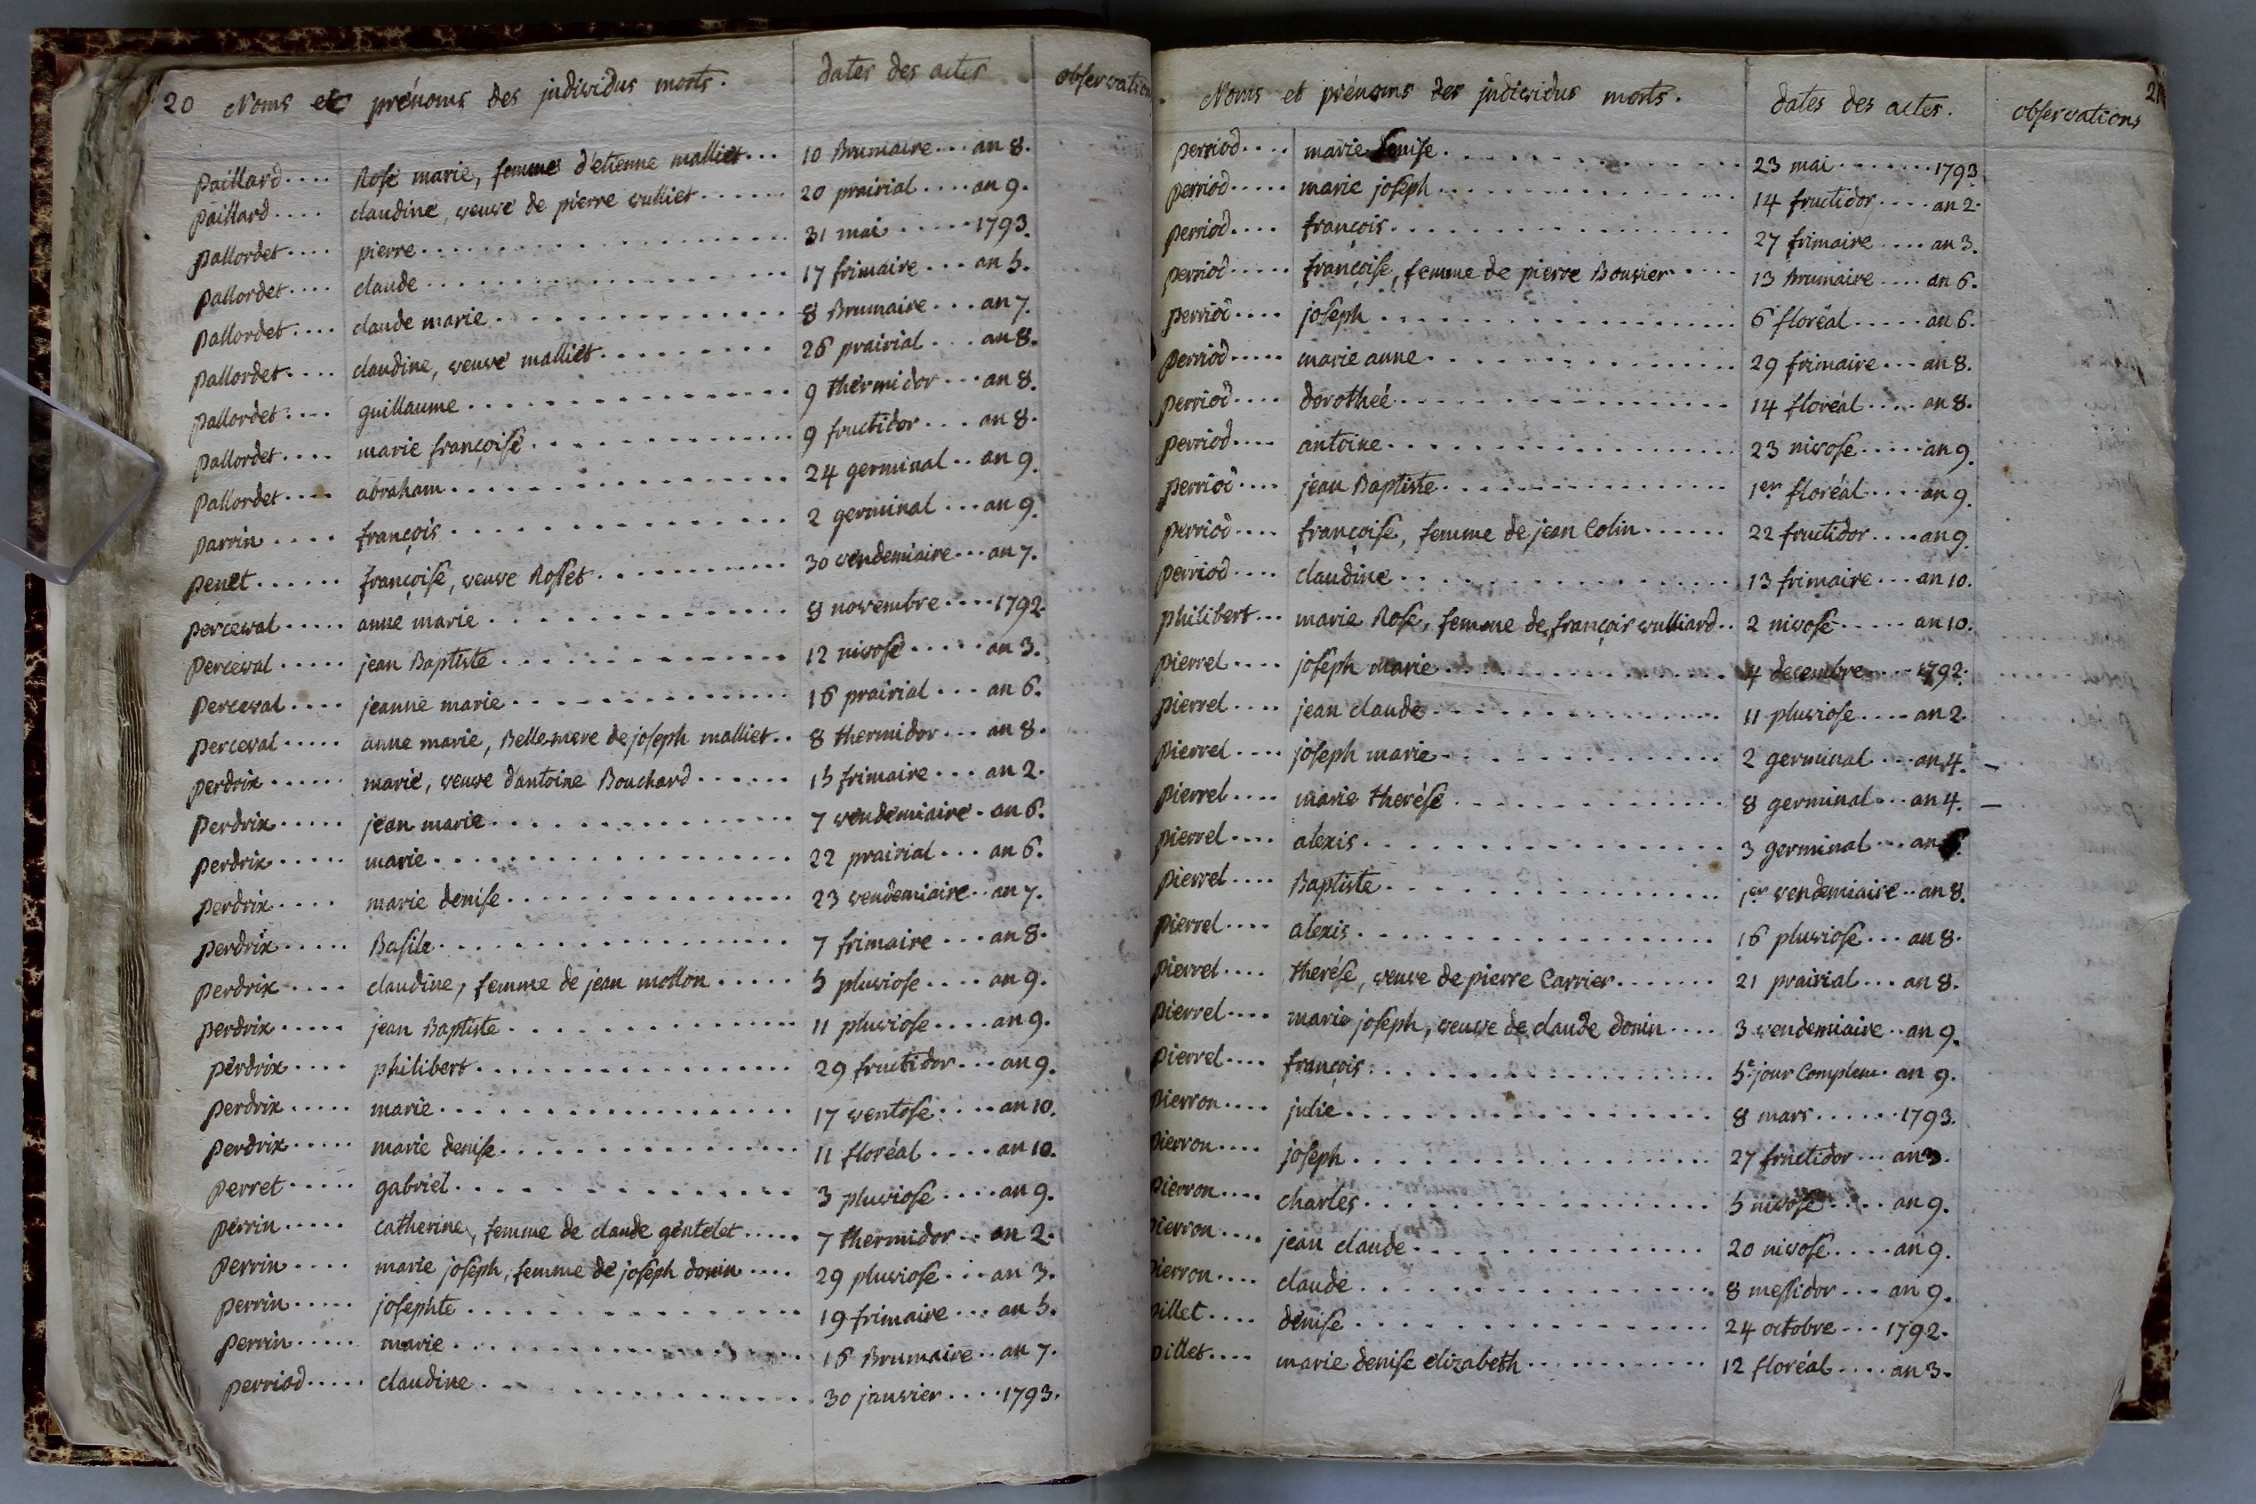 20 Noms et prénoms des individus morts. dates des actes observations
paillard.... Rose marie, femme d'etienne malliet... 10 Brumaire... an 8.
paillard.... claudine, veuve de pierre vulliet...... 20 prairial.... an 9.
pallordet.... pierre.................. 31 mai...... 1793.
pallordet.... claude.................. 17 frimaire... an 5.
pallordet.... claude marie............... 8 Brumaire... an 7.
pallordet.... claudine, veuve malliet......... 26 prairial... an 8.
pallordet.... guillaume................ 9 thermidor... an 8.
pallordet.... marie françoise............. 9 fructidor... an 8.
pallordet.... abraham................. 24 germinal.. an 9.
parrin.... françois................. 2 germinal... an 9.
penet...... françoise, veuve Rosset........... 30 vendemiaire... an 7.
perceval..... anne marie............... 8 novembre.... 1792.
perceval..... jean Baptiste............... 12 nivose..... an 3.
perceval.... jeanne marie............... 16 prairial... an 6.
perceval..... anne marie, Bellemere de joseph malliet.. 8 thermidor... an 8.
perdrix...... marie, veuve d'antoine Bouchard...... 15 frimaire... an 2.
perdrix..... jean marie................ 7 vendemiaire. an 6.
perdrix..... marie.................. 22 prairial... an 6.
perdrix.... marie denise............... 23 vendemiaire.. an 7.
perdrix..... Basile.................. 7 frimaire... an 8.
perdrix.... claudine, femme de jean mollon..... 5 pluviose.... an 9.
perdrix..... jean Baptiste............... 11 pluviose.... an 9.
perdrix.... philibert................. 29 fructidor... an 9.
perdrix..... marie.................. 17 ventose.... an 10.
perdrix..... marie denise............... 11 floréal.... an 10.
perret..... gabriel................. 3 pluviose.... an 9.
perrin..... catherine, femme de claude gentelet..... 7 thermidor.. an 2.
perrin.... marie joseph, femme de joseph donin.... 29 pluviose... an 3.
perrin..... josephte................. 19 frimaire... an 5.
perrin..... marie.................. 16 Brumaire.. an 7.
perriod..... claudine................. 30 janvier.... 1793.
Noms et prénoms des individus morts. dates des actes. observations 21
perriod.... marie denise................ 23 mai....... 1793.
perriod..... marie joseph............... 14 fructidor.... an 2.
perriod.... françois.................. 27 frimaire.... an 3.
perriod..... françoise, femme de pierre Bouvier.... 13 Brumaire.... an 6.
perriod.... joseph.................. 6 floréal..... an 6.
perriod..... marie anne................ 29 frimaire... an 8.
perriod.... dorotheé................. 14 floréal..... an 8.
perriod.... antoine.................. 23 nivose..... an 9.
perriod.... jean Baptiste............... 1er floréal.... an 9.
perriod.... françoise, femme de jean Colin...... 22 fructidor.... an 9.
perriod.... claudine................. 13 frimaire... an 10.
philibert... marie Rose, femme de françois vulliard.. 2 nivose..... an 10.
pierrel.... joseph marie............... 4 decembre.... 1792.
pierrel.... jean claude............... 11 pluviose.... an 2.
pierrel.... joseph marie............... 2 germinal... an 4. —
pierrel.... marie therése.............. 8 germinal... an 4. —
pierrel.... alexis.................. 3 germinal... an
pierrel.... Baptiste................. 1er vendemiaire.. an 8.
pierrel.... alexis.................. 16 pluviose... an 8.
pierrel.... therése, veuve de pierre Carrier....... 21 prairial... an 8.
pierrel.... marie joseph, veuve de claude donin.... 3 vendemiaire.. an 9.
pierrel.... françois................. 5e jour Complem. an 9.
pierron.... julie.................. 8 mars...... 1793.
pierron.... joseph.................. 27 fructidor... an 3.
pierron.... charles.................. 5 nivose.... an 9.
pierron.... jean claude............... 20 nivose.... an 9.
pierron.... claude.................. 8 messidor... an 9.
pillet.... denise.................. 24 octobre... 1792.
pillet.... marie denise elizabeth........... 12 floréal.... an 3.